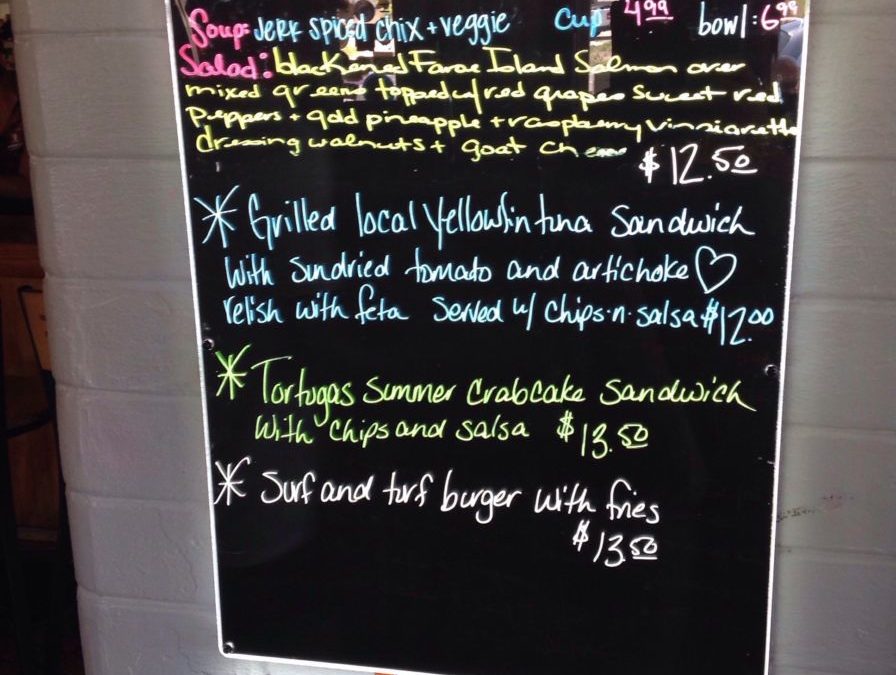 Soup: Jerk spiced chix + veggie Cup 4.99 bowl: 6.99
Salad: blackened Faroe Island Salmon over
mixed greens topped w/ red grapes Sweet red
Peppers + gold pineapple + raspberry vinniarette
dressing walnuts + goat cheese $12.50
* Grilled local Yellowfin tuna Sandwich
With Sundried tomato and artichoke ♡
relish with feta Served w/ Chips·n·salsa $12.00
* Tortugas Summer Crabcake Sandwich
With Chips and salsa $13.50
* Surf and turf burger with fries
$13.50